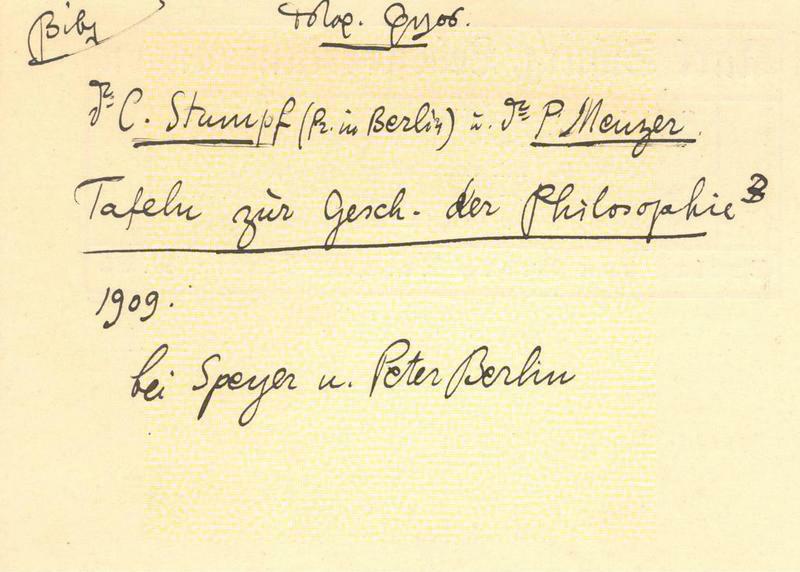 Bibl
Dr C. Stumpf (Pr. in Berlin) u. Dr P. Menzer
Tafeln zur Gesch. der Philosophie 3
1909.
bei Speyer u. Peter Berlin